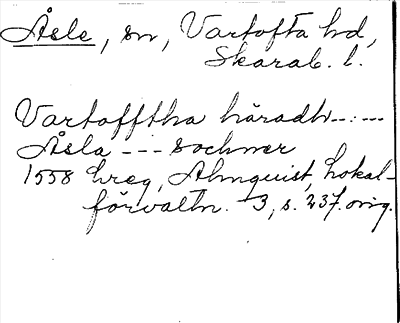 Åsle, sn, Vartofta hd,
Skarab. l.
Vartofftha häradh - : - -
Åsla - - - sochner
1558 hreg, Almquist, Lokal-
förvaltn. 3, s. 237. orig.